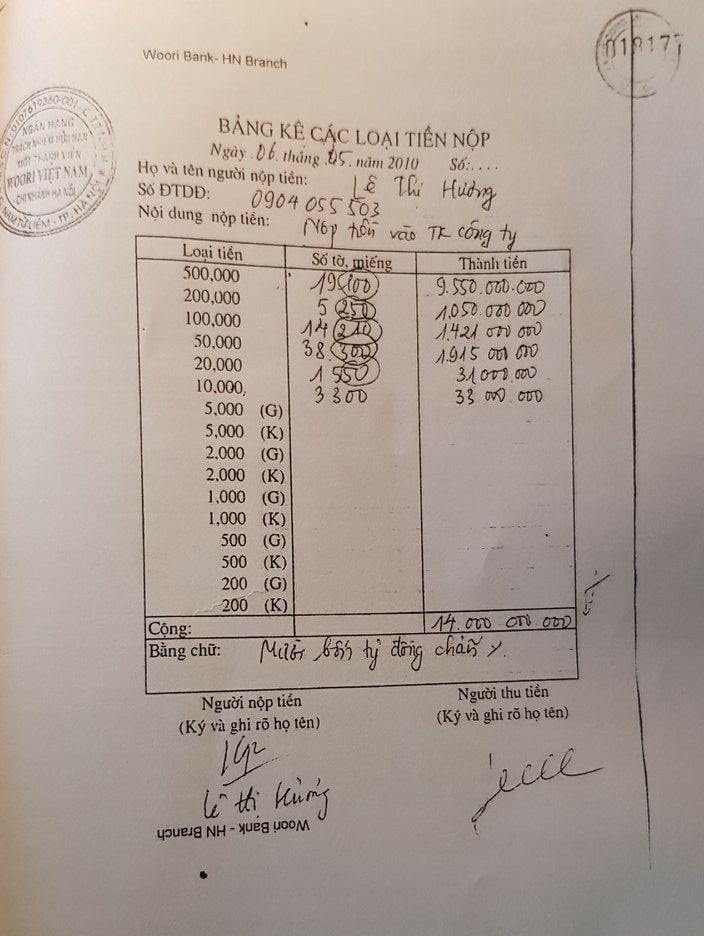 Woori Bank- HN Branch
018177
M.S.C.N:0107619360-001-C.T.T.N.H.H
NGÂN HÀNG
TRÁCH NHIỆM HỮU HẠN
MỘT THÀNH VIÊN
WOORI VIỆT NAM
CHI NHÁNH HÀ NỘI
NAM TỪ LIÊM - TP. HÀ NỘI
BẢNG KÊ CÁC LOẠI TIỀN NỘP
Ngày .06 tháng .05. năm 2010 Số:....
Họ và tên người nộp tiền: Lê Thị Hương
Số ĐTDĐ: 0904 055 503
Nội dung nộp tiền: Nộp tiền vào TK công ty
Loại tiền Số tờ, miếng Thành tiền
500,000 19100 9.550.000.000
200,000 5 250 1.050 000 000
100,000 14 210 1.421 000 000
50,000 38.300 1.915 000 000
20,000 1 550 31 000.000
10,000, 3 300 33 000.000
5,000 (G)
5,000 (K)
2.000 (G)
2.000 (K)
1,000 (G)
1,000 (K)
500 (G)
500 (K)
200 (G)
200 (K)
Cộng: 14.000 000.000
Bằng chữ: Mười bốn tỷ đồng chẵn
Người nộp tiền Người thu tiền
(Ký và ghi rõ họ tên) (Ký và ghi rõ họ tên)
Lê Thị Hương
Woori Bank - HN Branch